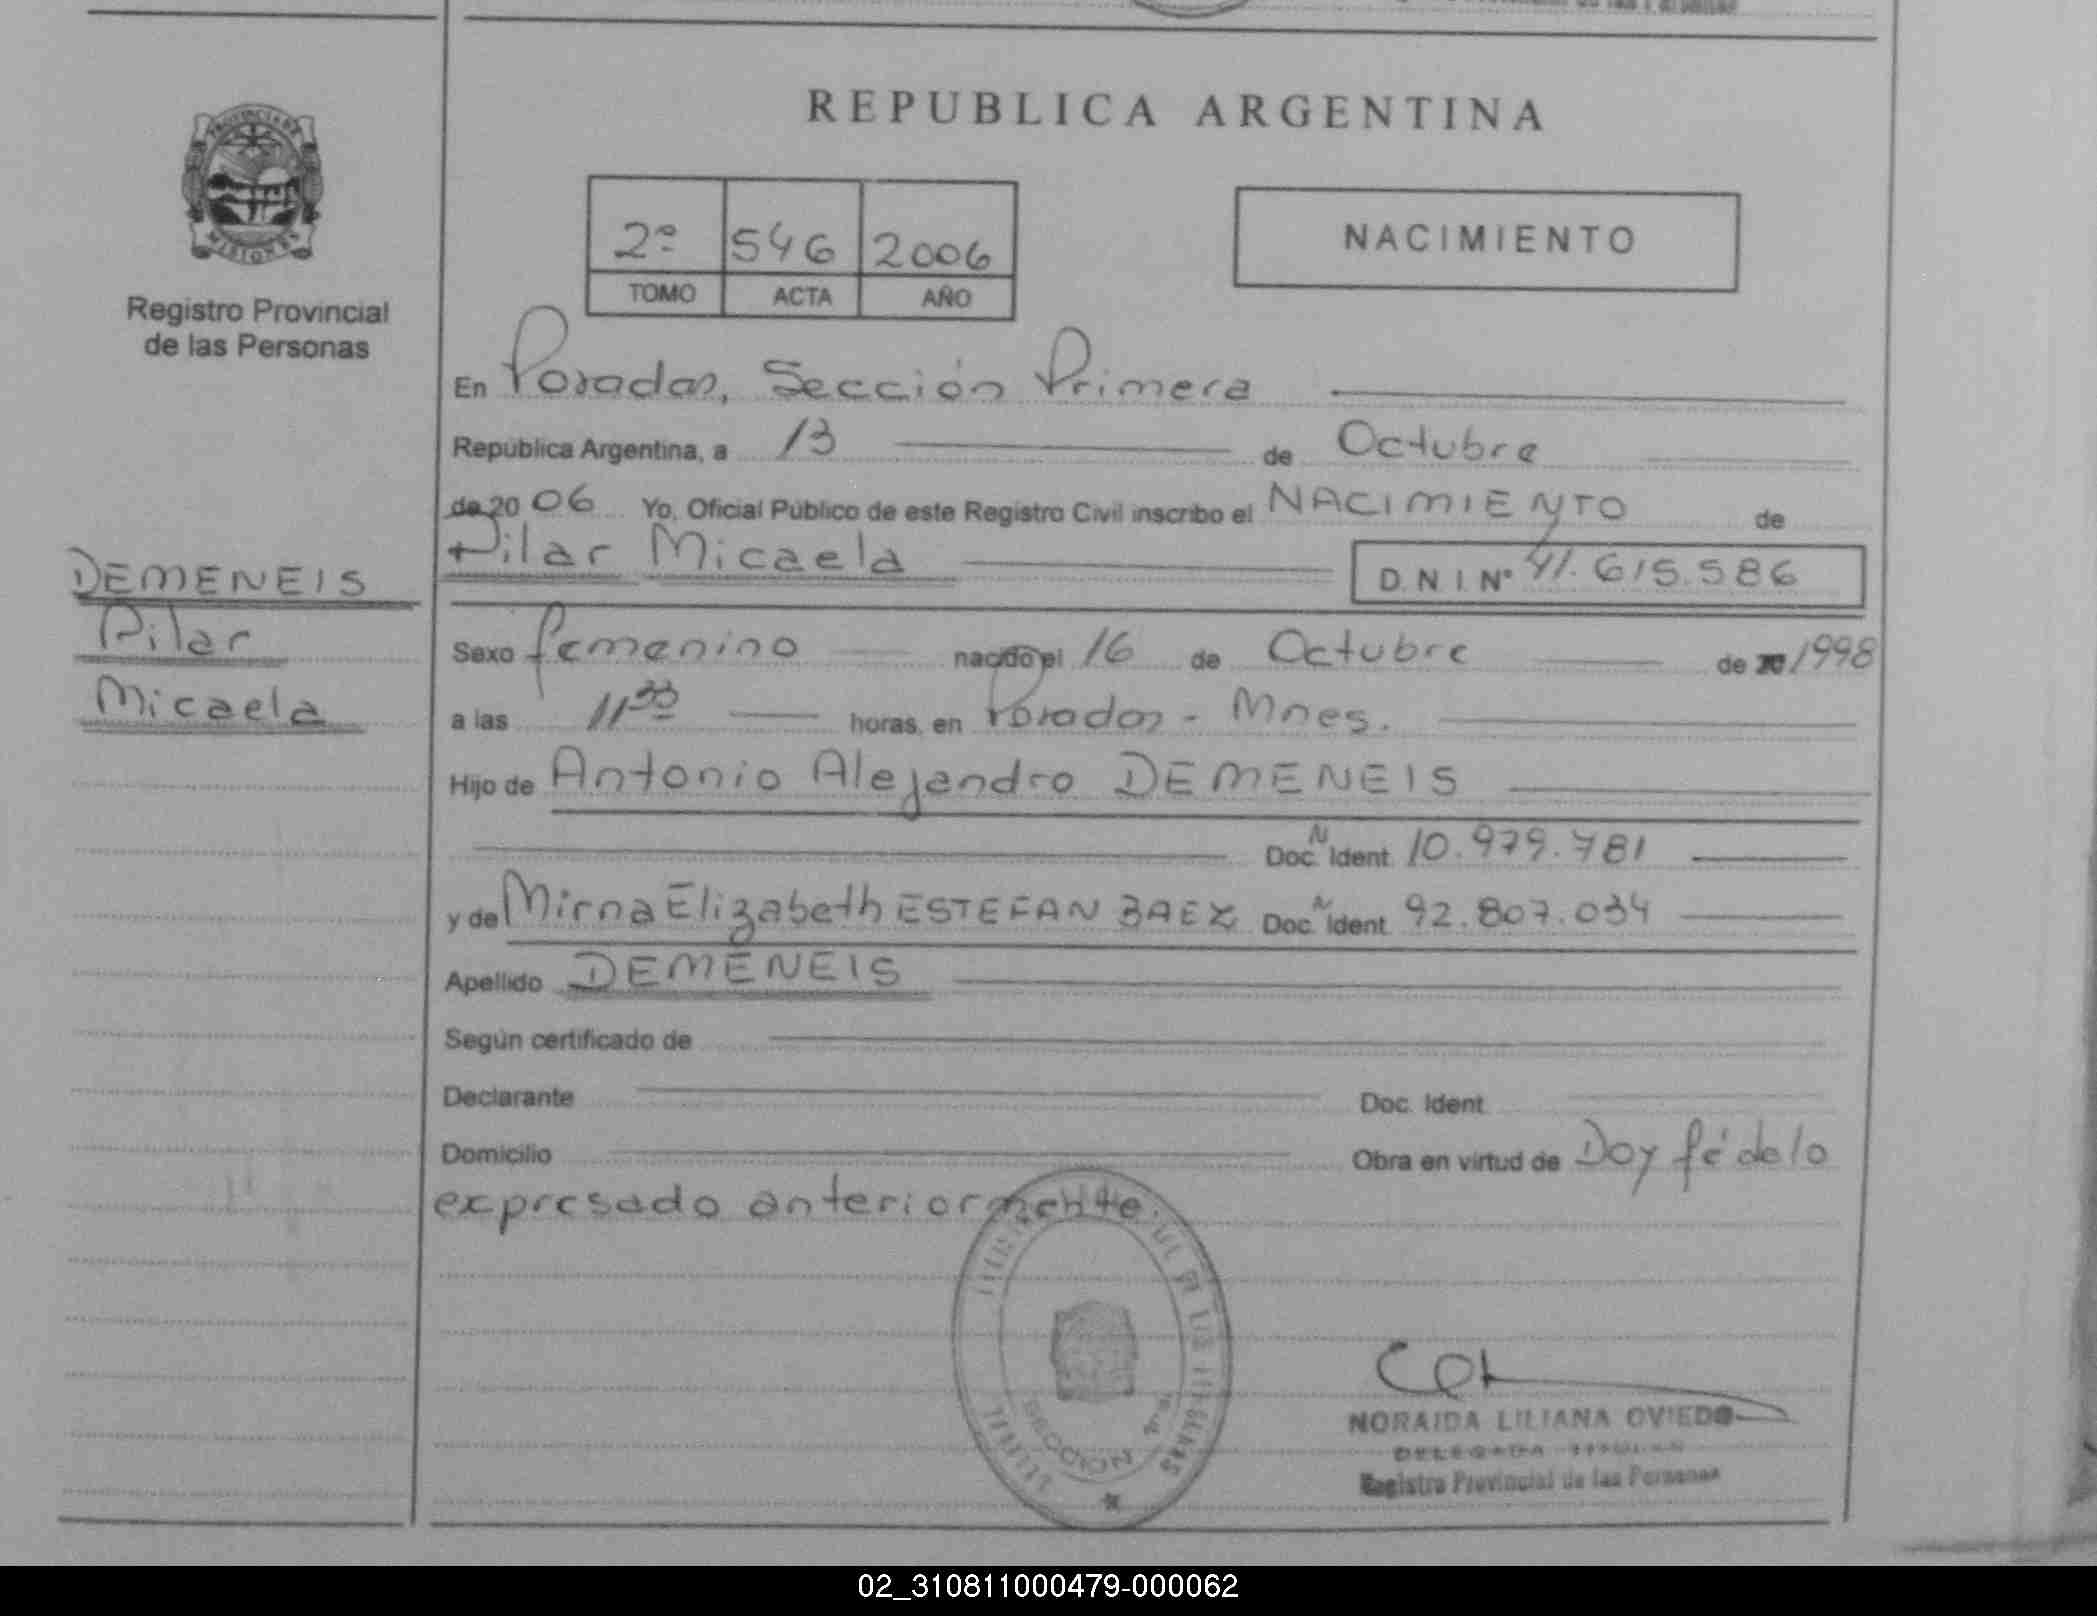 REPUBLICA ARGENTINA
PROVINCIA DE
MISIONES
Registro Provincial
de las Personas
2º 546 2006
TOMO ACTA AÑO
NACIMIENTO
En Posadas, Sección Primera
República Argentina, a 13 de Octubre
de 20 06 Yo, Oficial Público de este Registro Civil inscribo el NACIMIENTO de
Pilar Micaela D.N.I.Nº 41.615.586
DEMENEIS
Pilar
Micaela
Sexo femenino nacido el 16 de Octubre de 1998
a las 11 33 horas, en Posadas - Mnes.
Hijo de Antonio Alejandro DEMENEIS
Doc. N Ident. 10.979.781
y de Mirna Elizabeth ESTEFAN BAEZ Doc. N Ident. 92.807.034
Apellido DEMENEIS
Según certificado de
Declarante Doc. Ident.
Domicilio Obra en virtud de Doy fé de lo
expresado anteriormente.
SECCION 1ra
NORAIDA LILIANA OVIEDO
DELEGADA TITULAR
Registro Provincial de las Personas
02_310811000479-000062